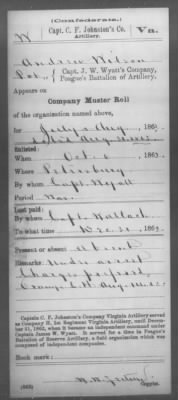 (Confederate.)
W Capt. C. F. Johnston's Co. Va.
Artillery.
Andrew Wilson
Pvt., Capt. J. W. Wyatt's Company,
Poague's Battalion of Artillery.
Appears on
Company Muster Roll
of the organization named above,
for July & Aug, 186
Enlisted:
When Oct. 186
Where Petersburg
By whom Capt. Wyatt
Period War
Last paid:
By whom Capt. Wallach
To what time Dec. 31, 1863.
Present or absent absent
Remarks: Under arrest
Charges preferred
Orange C.H. Aug.
Captain C. F. Johnston's Company Virginia Artillery served
as Company H, 1st Regiment Virginia Artillery, until December
31, 1862, when it became an independent command under
Captain James W. Wyatt. It served for a time in Poague's
Battalion of Reserve Artillery, a field organization which was
composed of independent companies.
Book mark:
(642)
Copyist.